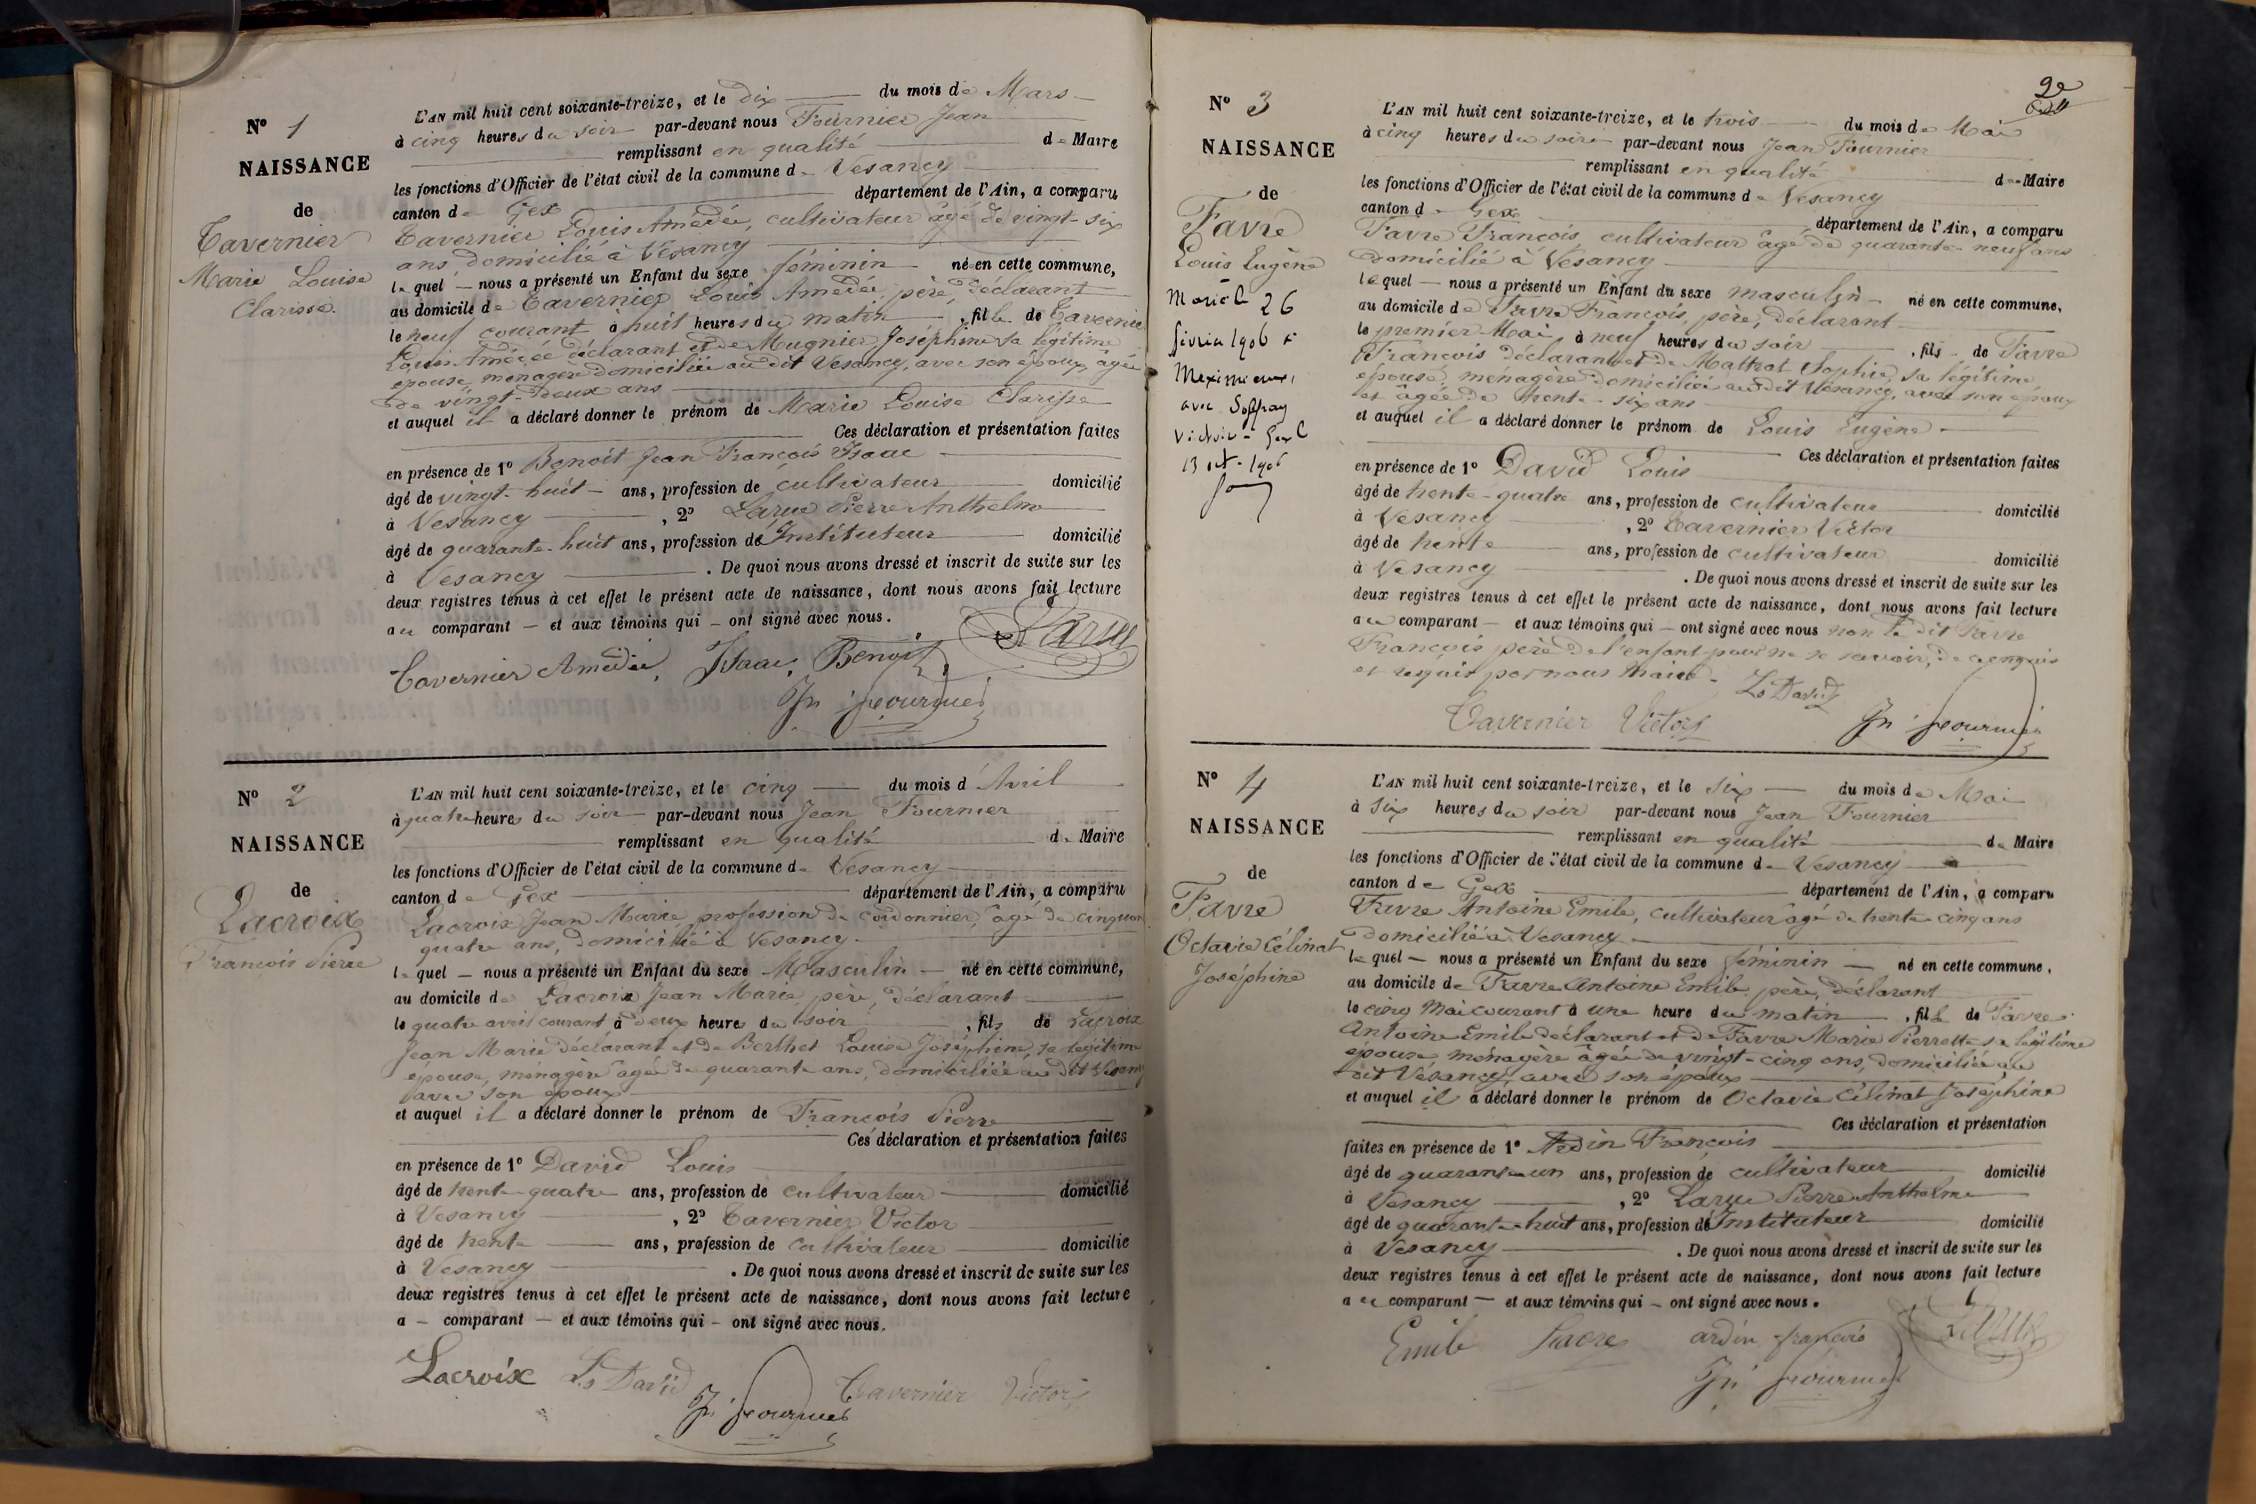 N° 1
NAISSANCE
de
Tavernier
Marie Louise
Clarisse.
L'AN mil huit cent soixante-treize, et le dix du mois de Mars
à cinq heures du soir par-devant nous Fournier Jean
remplissant en qualité de Maire
les fonctions d'Officier de l'état civil de la commune de Vesancy
canton de Gex département de l'Ain, a comparu
Tavernier Louis Amédée, cultivateur âgé de vingt-six
ans, domicilié à Vesancy
lequel nous a présenté un Enfant du sexe féminin né en cette commune,
au domicile de Tavernier Louis Amédée père, déclarant
le neuf courant à huit heures du matin, fille de Tavernier
Louis Amédée déclarant et de Mugnier Joséphine sa légitime
épouse, ménagère domiciliée au dit Vesancy, avec son époux, âgée
de vingt-deux ans
et auquel il a déclaré donner le prénom de Marie Louise Clarisse
Ces déclaration et présentation faites
en présence de 1° Benoit Jean François Isaac
âgé de vingt-huit ans, profession de cultivateur domicilié
à Vesancy, 2° Larue Pierre Anthelme
âgé de quarante-huit ans, profession de Instituteur domicilié
à Vesancy. De quoi nous avons dressé et inscrit de suite sur les
deux registres tenus à cet effet le présent acte de naissance, dont nous avons fait lecture
au comparant et aux témoins qui ont signé avec nous.
Tavernier Amédée, Isaac Benoit Larue
Jn Fournier
N° 2
NAISSANCE
de
Lacroix
François Pierre
L'AN mil huit cent soixante-treize, et le cinq du mois d'Avril
à quatre heures du soir par-devant nous Jean Fournier
remplissant en qualité de Maire
les fonctions d'Officier de l'état civil de la commune de Vesancy
canton de Gex département de l'Ain, a comparu
Lacroix Jean Marie profession de cordonnier, âgé de cinquante
quatre ans, domicilié à Vesancy.
lequel nous a présenté un Enfant du sexe Masculin né en cette commune,
au domicile de Lacroix Jean Marie père, déclarant
le quatre avril courant à deux heures du soir, fils de Lacroix
Jean Marie déclarant et de Berthet Louise Joséphine, sa légitime
épouse, ménagère âgée de quarante ans, domiciliée au dit Vesancy
avec son époux
et auquel il a déclaré donner le prénom de François Pierre
Ces déclaration et présentation faites
en présence de 1° David Louis
âgé de trente-quatre ans, profession de cultivateur domicilié
à Vesancy, 2° Tavernier Victor
âgé de trente ans, profession de cultivateur domicilié
à Vesancy. De quoi nous avons dressé et inscrit de suite sur les
deux registres tenus à cet effet le présent acte de naissance, dont nous avons fait lecture
a comparant et aux témoins qui ont signé avec nous.
Lacroix Ls David Tavernier Victor
Jn Fournier
2e
N° 3
NAISSANCE
de
Favre
Louis Eugène
Marié le 26
février 1906 à
Meximieux,
avec
Victoire - Gex le
13 oct - 1906
L'AN mil huit cent soixante-treize, et le trois du mois de Mai
à cinq heures du soir par-devant nous Jean Fournier
remplissant en qualité de Maire
les fonctions d'Officier de l'état civil de la commune de Vesancy
canton de Gex département de l'Ain, a comparu
Favre François, cultivateur âgé de quarante-neuf ans
domicilié à Vesancy
lequel nous a présenté un Enfant du sexe masculin né en cette commune,
au domicile de Favre François, père, déclarant
le premier Mai à neuf heures du soir, fils de Favre
François déclarant et de Mathal Sophie, sa légitime
épouse, ménagère domiciliée au dit Vesancy, avec son époux
et âgée de trente-six ans
et auquel il a déclaré donner le prénom de Louis Eugène
Ces déclaration et présentation faites
en présence de 1° David Louis
âgé de trente-quatre ans, profession de cultivateur domicilié
à Vesancy, 2° Tavernier Victor
âgé de trente ans, profession de cultivateur domicilié
à Vesancy. De quoi nous avons dressé et inscrit de suite sur les
deux registres tenus à cet effet le présent acte de naissance, dont nous avons fait lecture
au comparant et aux témoins qui ont signé avec nous non le dit Favre
François père de l'enfant pour ne le savoir, de ce enquis
et requis par nous Maire.
Ls David
Tavernier Victor Jn Fournier
N° 4
NAISSANCE
de
Favre
Octavie Célinat
Joséphine
L'AN mil huit cent soixante-treize, et le six du mois de Mai
à six heures du soir par-devant nous Jean Fournier
remplissant en qualité de Maire
les fonctions d'Officier de l'état civil de la commune de Vesancy
canton de Gex département de l'Ain, a comparu
Favre Antoine Emile, cultivateur âgé de trente cinq ans
domicilié à Vesancy
lequel nous a présenté un Enfant du sexe féminin né en cette commune,
au domicile de Favre Antoine Emile père, déclarant
le cinq Mai courant à une heure du matin, fille de Favre
Antoine Emile déclarant et de Favre Marie Pierrette sa légitime
épouse, ménagère âgée de vingt-cinq ans, domiciliée au
dit Vesancy, avec son époux
et auquel il a déclaré donner le prénom de Octavie Célinat Joséphine
Ces déclaration et présentation
faites en présence de 1° Ardin François
âgé de quarante un ans, profession de cultivateur domicilié
à Vesancy, 2° Larue Pierre Anthelme
âgé de quarante-huit ans, profession de Instituteur domicilié
à Vesancy. De quoi nous avons dressé et inscrit de suite sur les
deux registres tenus à cet effet le présent acte de naissance, dont nous avons fait lecture
au comparant et aux témoins qui ont signé avec nous.
Emile Favre ardin françois Larue
Jn Fournier